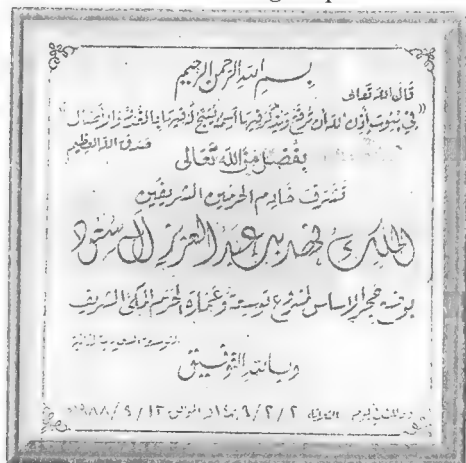 بسم الله الرحمن الرحيم
قال الله تعالى
"في بيوت أذن الله أن ترفع ويذكر فيها اسمه يسبح له فيها بالغدو والآصال
صدق الله العظيم
بفضل من الله تعالى
تشرف خادم الحرمين الشريفين
الملك فهد بن عبد العزيز آل سعود
بوضع حجر الأساس لمشروع توسعة وعمارة الحرم المكي الشريف
التوسعة السعودية الثانية
وبالله التوفيق
يوم الموافق